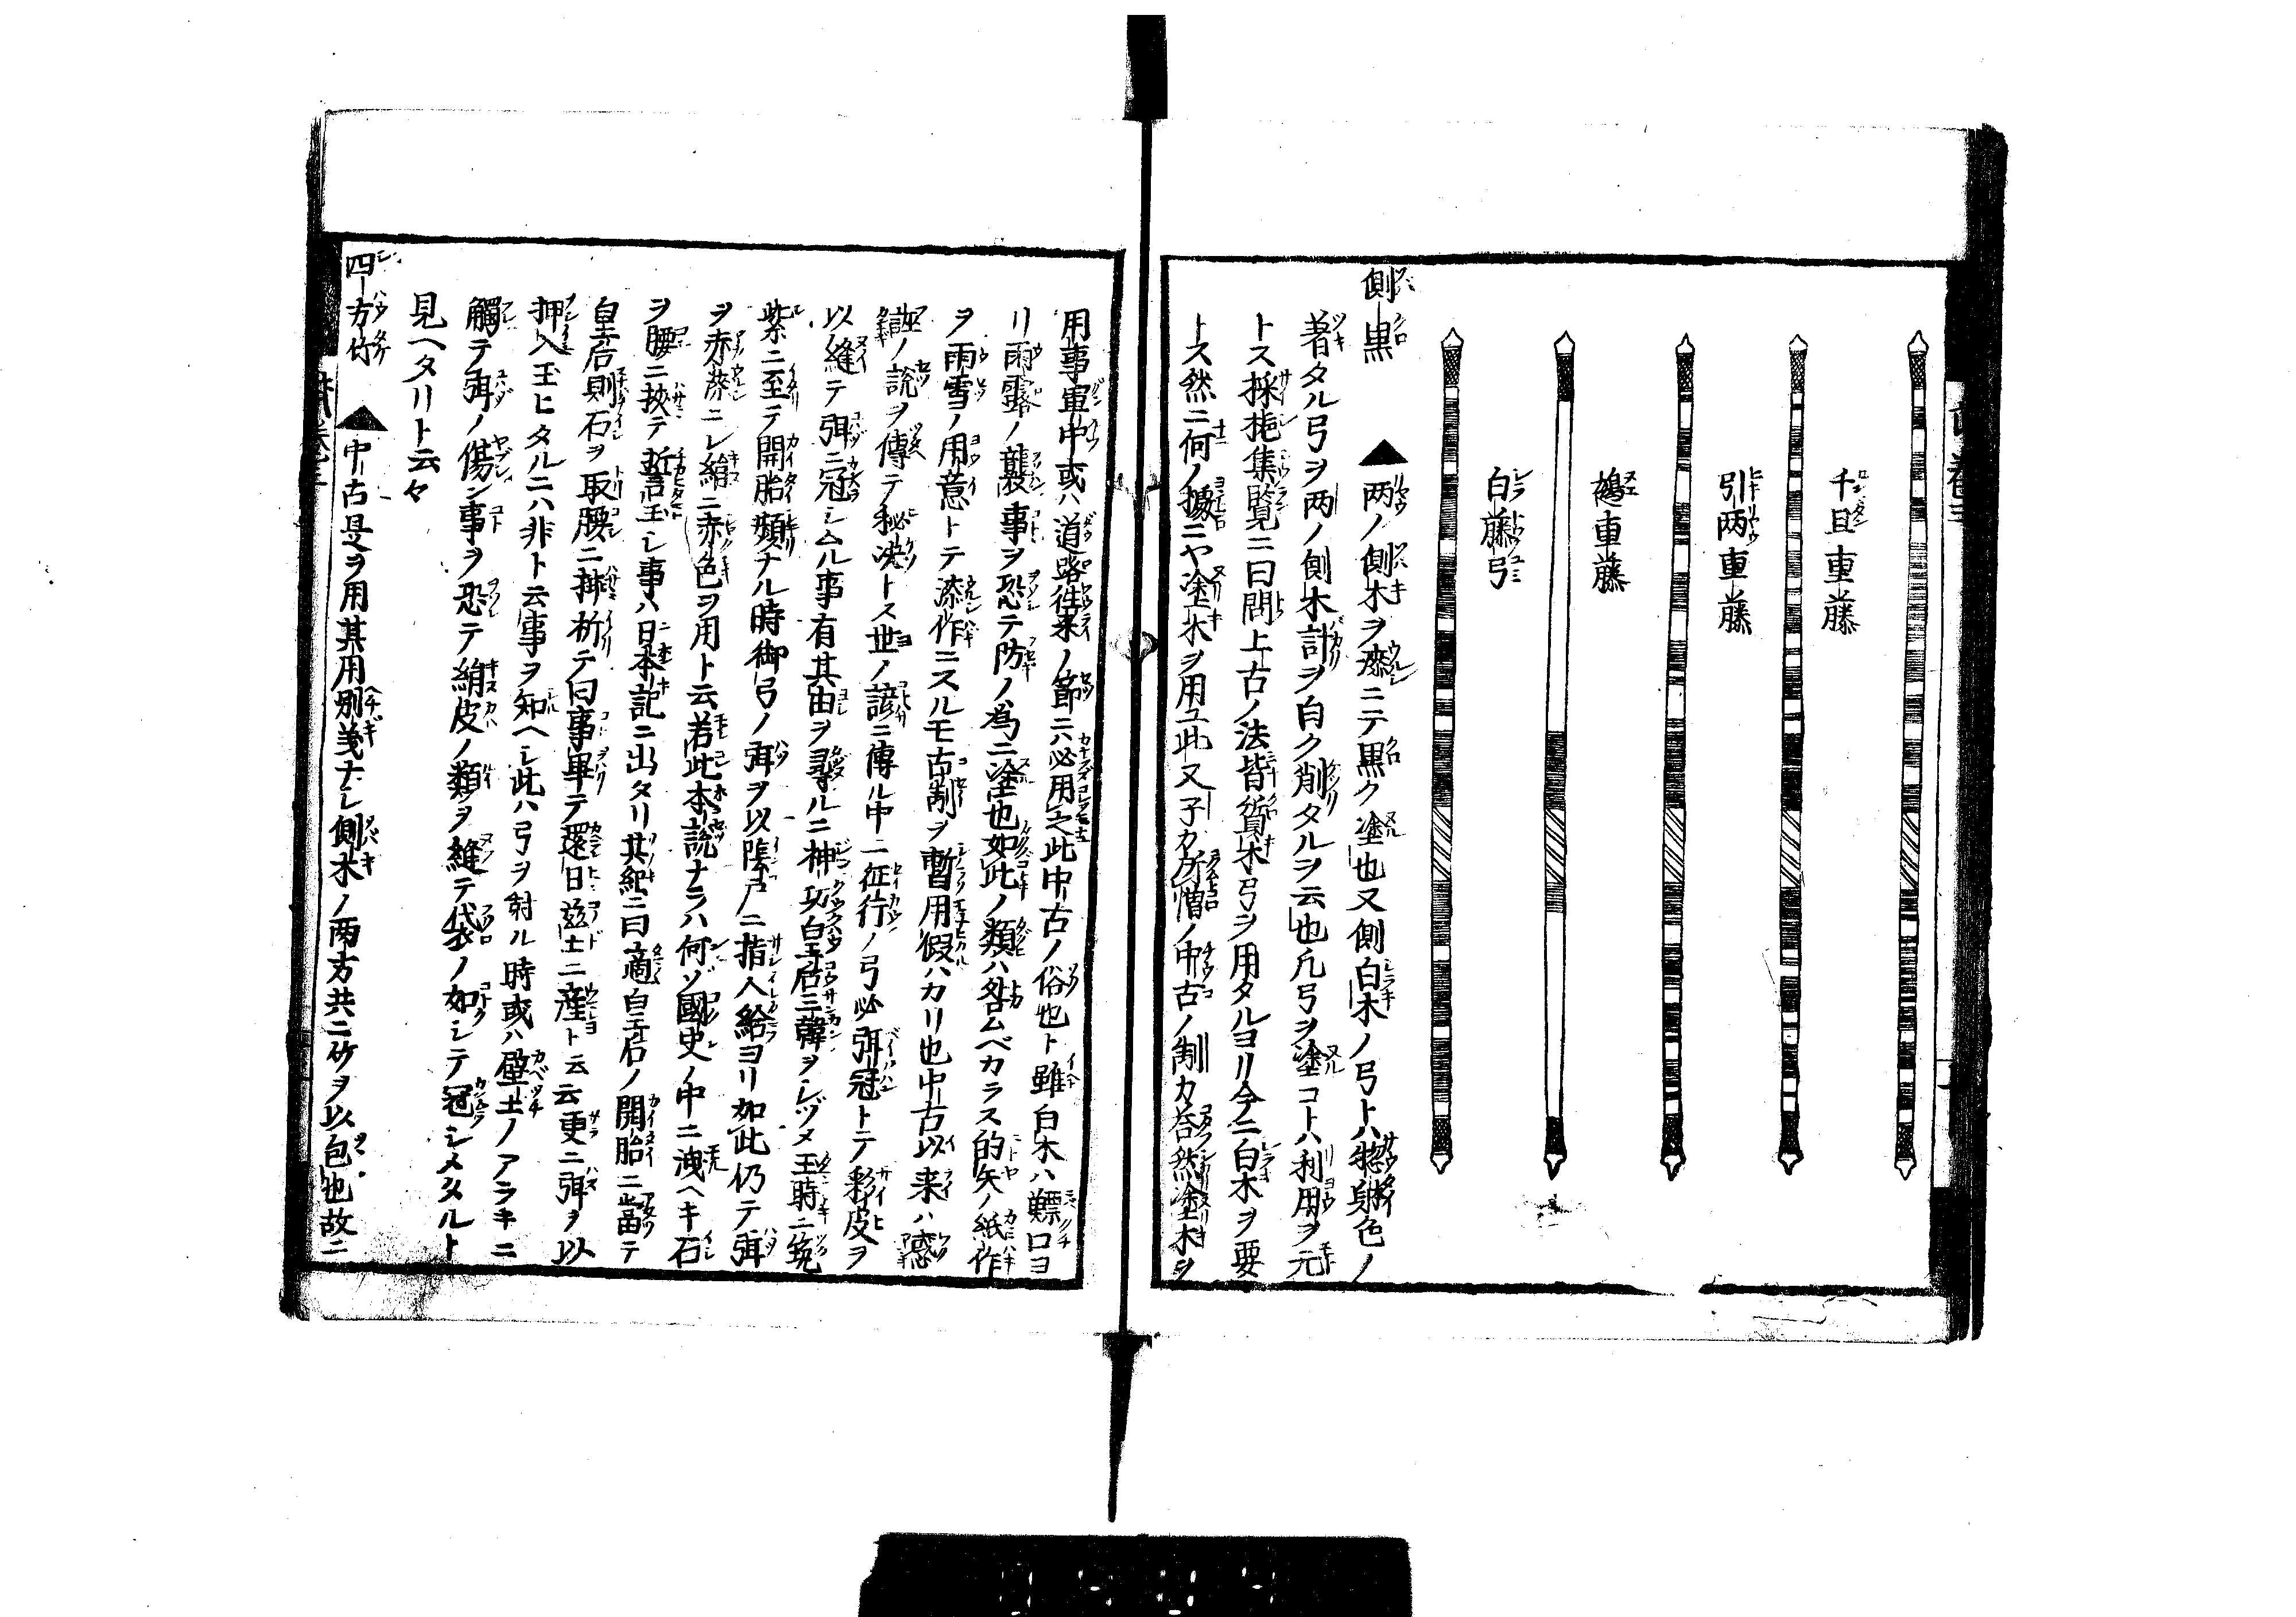 千且重藤
引両重藤
鵺重藤
白藤弓
側黒 ▲両ノ側木ヲ漆ニテ黒ク塗也又側白木ノ弓トハ惣身色ノ
著タル弓ヲ両ノ側木計ヲ白ク削タルヲ云也凡弓ヲ塗コトハ利用ヲ元
トス採挹集覧ニ曰問上古ノ法皆質木弓ヲ用タルヨリ今ニ白木ヲ要
トス然ニ何ノ據ニヤ塗木ヲ用ユ此又子カ所憎ノ中古ノ制カ答然塗木ヲ
用事軍中或ハ道路往来ノ節ニハ必用之此中古ノ俗也ト雖白木ハ鰾口ヨ
リ雨露ノ襲事ヲ恐テ防ノ為ニ塗也如此ノ類ハ咎ムベカラス的矢ノ紙作
ヲ雨雪ノ用意トテ漆作ニスルモ古制ヲ暫用假ハカリ也中古以来ハ
ノ説ヲ傳テ秘决トス世ノ諺ニ傳ル中ニ征行ノ弓必弭冠トテ彩皮ヲ
以縫テ弭ニ冠シムル事有其由ヲ尋ルニ神功皇后三韓ヲシヅメ玉時ニ筑
紫ニ至テ開胎頻ナル時御弓ノ弭ヲ以陰戸ニ指入給ヨリ如此仍テ弭
ヲ赤漆ニシ絹ニ赤色ヲ用ト云若此本説ナラハ何ゾ國史ノ中ニ洩ヘキ石
ヲ腰ニ挟テ誓玉シ事ハ日本記ニ出タリ其紀ニ曰適皇后ノ開胎ニ當テ
皇后則石ヲ取腰ニ挿祈テ曰事畢テ還日茲土ニ産ト云云更ニ弭ヲ以
押入玉ヒタルニハ非ト云事ヲ知ヘシ此ハ弓ヲ射ル時或ハ壁土ノアラキニ
觸テ弭ノ傷ン事ヲ恐テ絹皮ノ類ヲ縫テ袋ノ如シテ冠シメタルト
見ヘタリト云々
四方竹 ▲中古是ヲ用其用別義ナシ側木ノ両方共ニ竹ヲ以包也故ニ